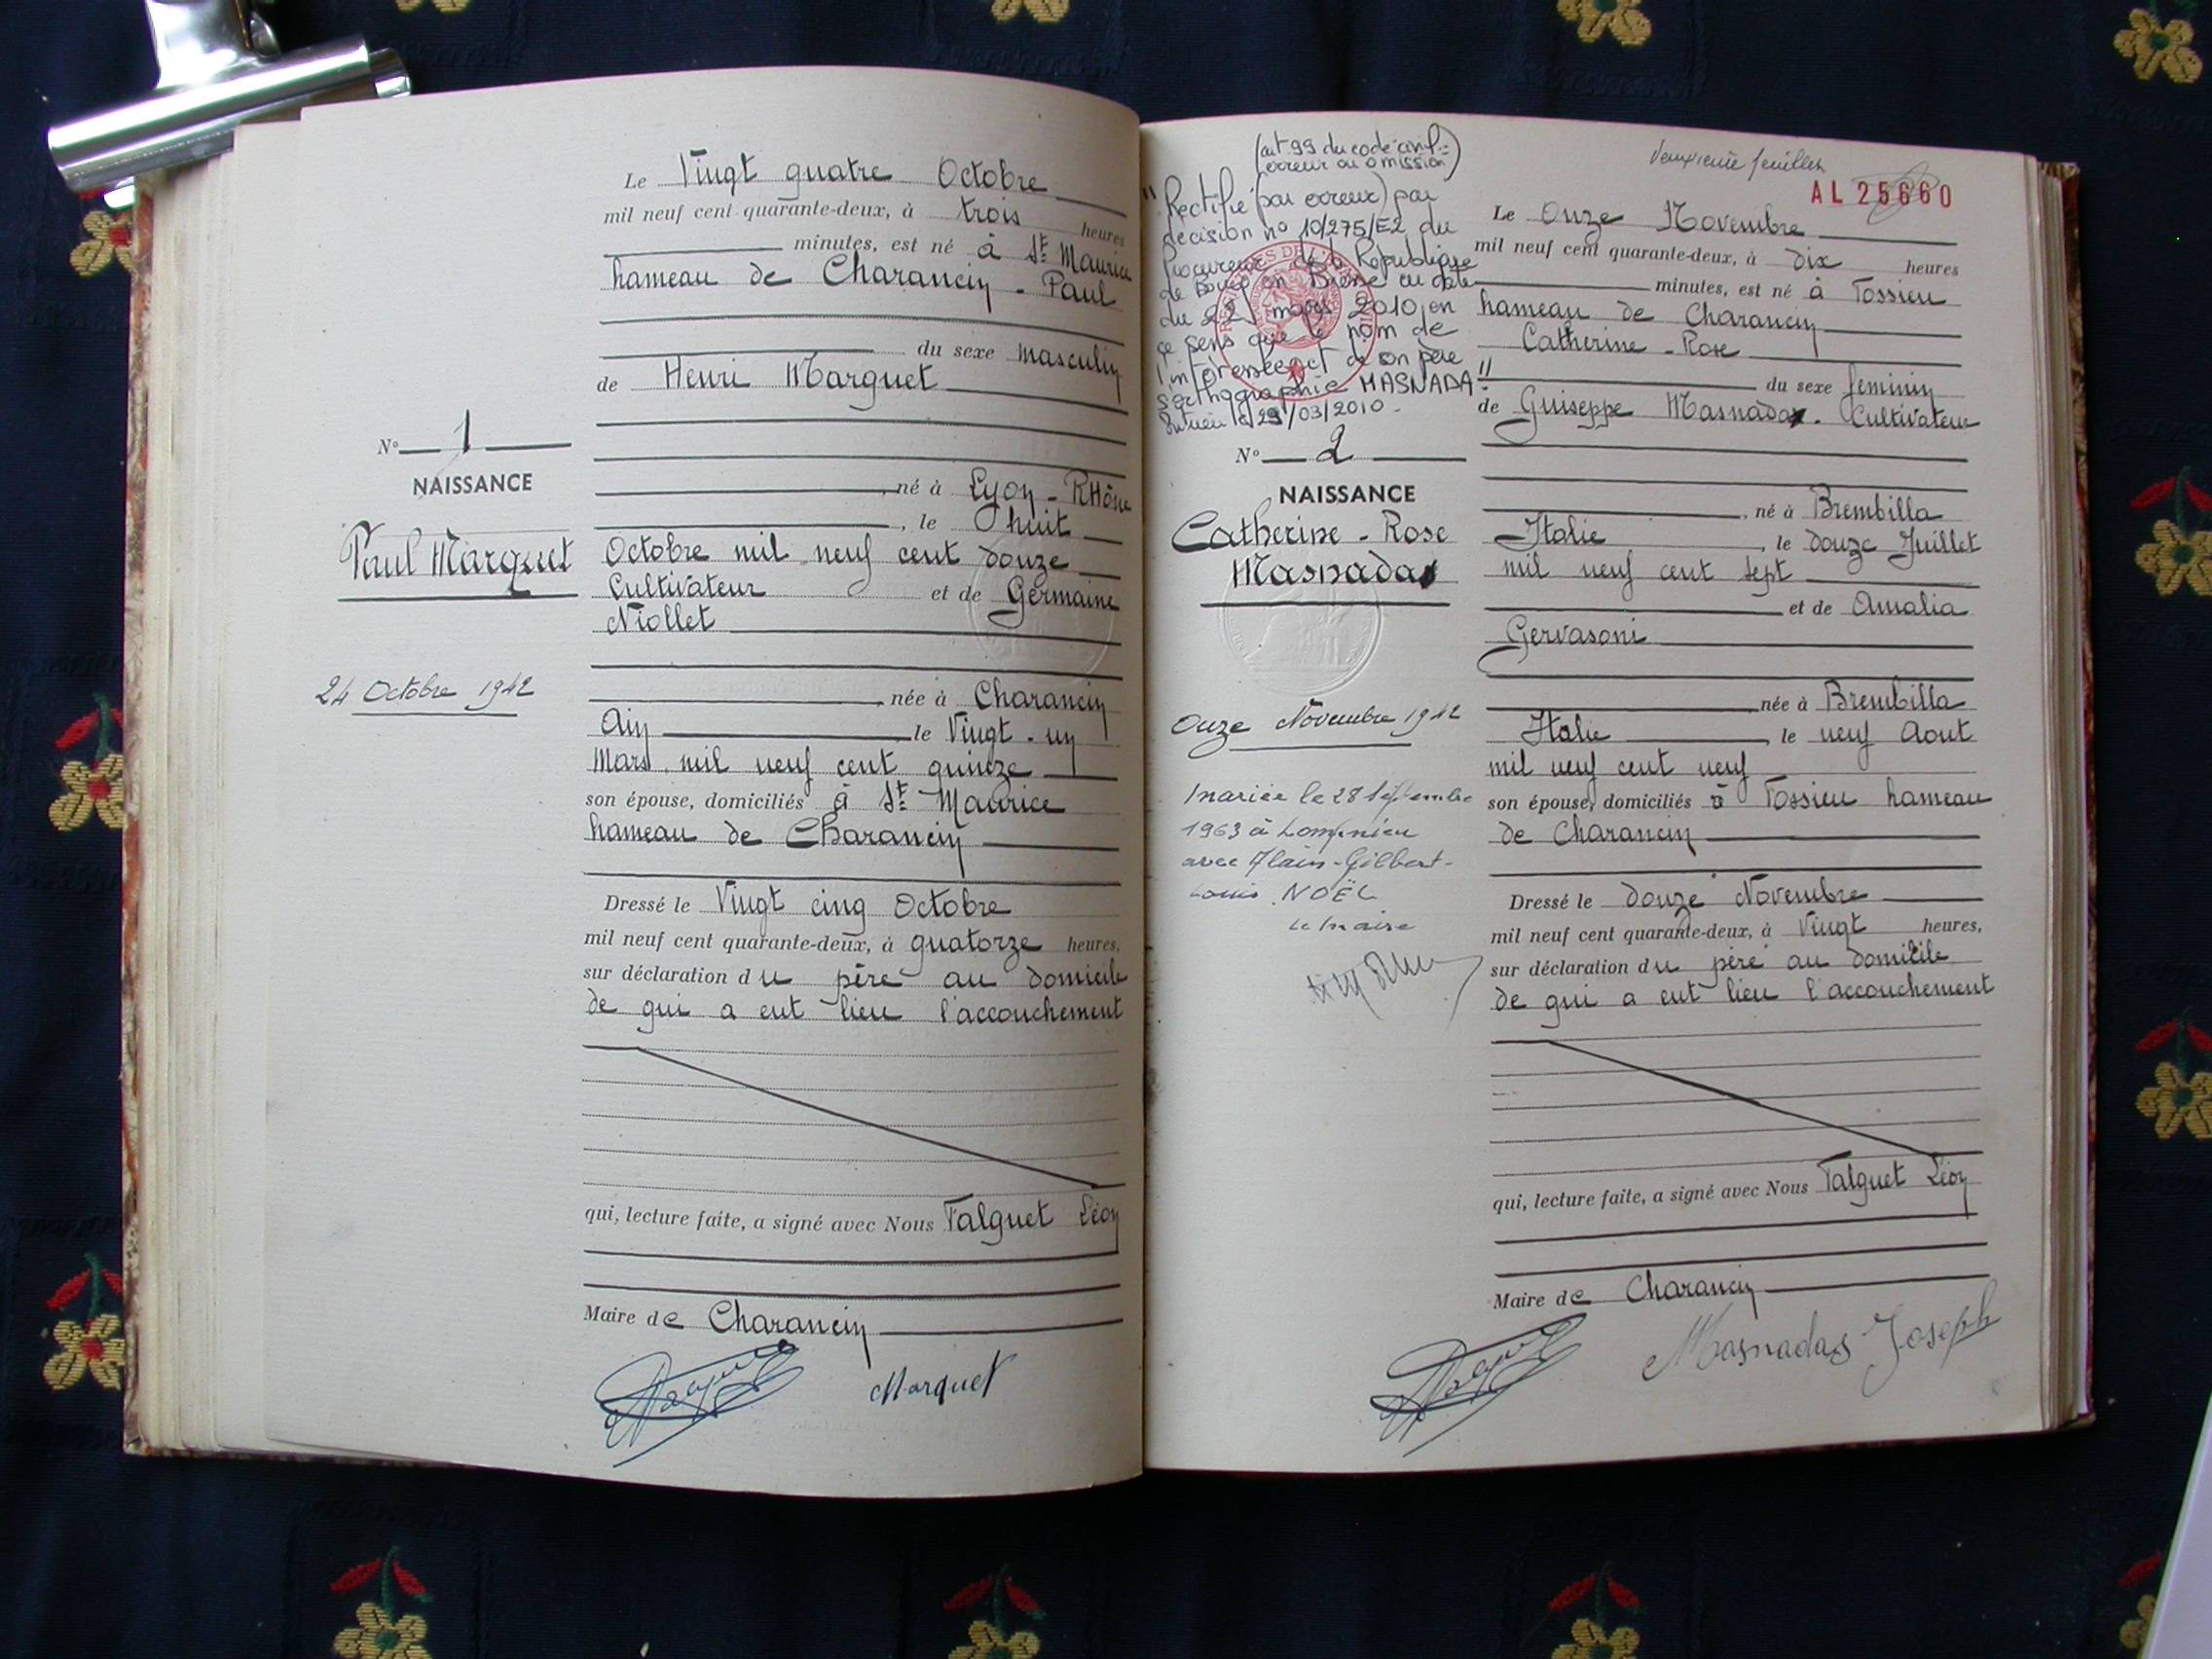 Le Vingt quatre Octobre
mil neuf cent quarante-deux, à trois heures
minutes, est né à St Maurice
hameau de Charancin - Paul
du sexe masculin
de Henri Marquet
N° 1
NAISSANCE
Paul Marquet
24 Octobre 1942
, né à Lyon - RHône
, le huit
Octobre mil neuf cent douze
Cultivateur et de Germaine
Niollet
, née à Charancin
Ain le Vingt - un
Mars mil neuf cent quinze
son épouse, domiciliés à St Maurice
hameau de Charancin
Dressé le Vingt cinq Octobre
mil neuf cent quarante-deux, à quatorze heures,
sur déclaration du père au domicile
de qui a eut lieu l'accouchement
qui, lecture faite, a signé avec Nous Talguet Léon
Maire de Charancin
Marquet
(art 99 du code civil :
erreur ou omission)
"Rectifié (par erreur) par
décision n° 10/275/E2 du
Procureur de la République
de Bourg en Bresse en date
du 22 mars 2010 en
ce sens que le nom de
l'intéressée et de son père
s'orthographie MASNADA."
le 29/03/2010.
N° 2
NAISSANCE
Catherine - Rose
Masnada
Onze Novembre 1942
mariée le 28 septembre
1963 à Lompnieu
avec Alain-Gilbert-
Louis NOËL
le maire
feuillet
AL 25660
Le Onze Novembre
mil neuf cent quarante-deux, à dix heures
minutes, est né à Fossieu
hameau de Charancin
Catherine - Rose
du sexe feminin
de Guiseppe Masnada. Cultivateur
, né à Brembilla
Italie, le douze Juillet
mil neuf cent sept
et de Amalia
Gervasoni
née à Brembilla
Italie, le neuf Aout
mil neuf cent neuf
son épouse, domiciliés à Fossieu hameau
de Charancin
Dressé le douze Novembre
mil neuf cent quarante-deux, à Vingt heures,
sur déclaration du père au domicile
de qui a eut lieu l'accouchement
qui, lecture faite, a signé avec Nous Talguet Léon
Maire de Charancin
Masnadas Joseph